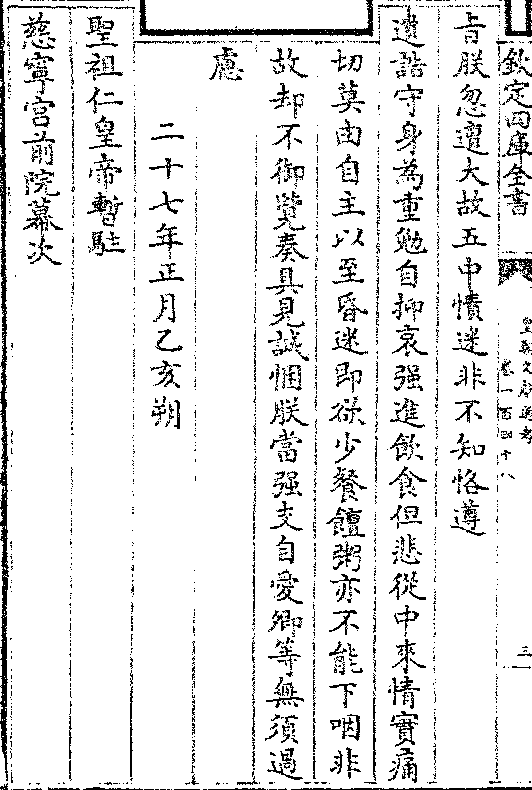 欽定四庫全書
皇朝文獻通考
卷一百四十八
三
旨朕忽遭大故五中憒迷非不知恪遵
遺誥守身為重勉自抑哀强進飲食但悲從中來情實痛
切莫由自主以至昏迷即欲少餐饘粥亦不能下咽非
故却不御覽奏具見誠悃朕當强支自愛卿等無須過
慮
二十七年正月乙亥朔
聖祖仁皇帝暫駐
慈寧宮前院幕次